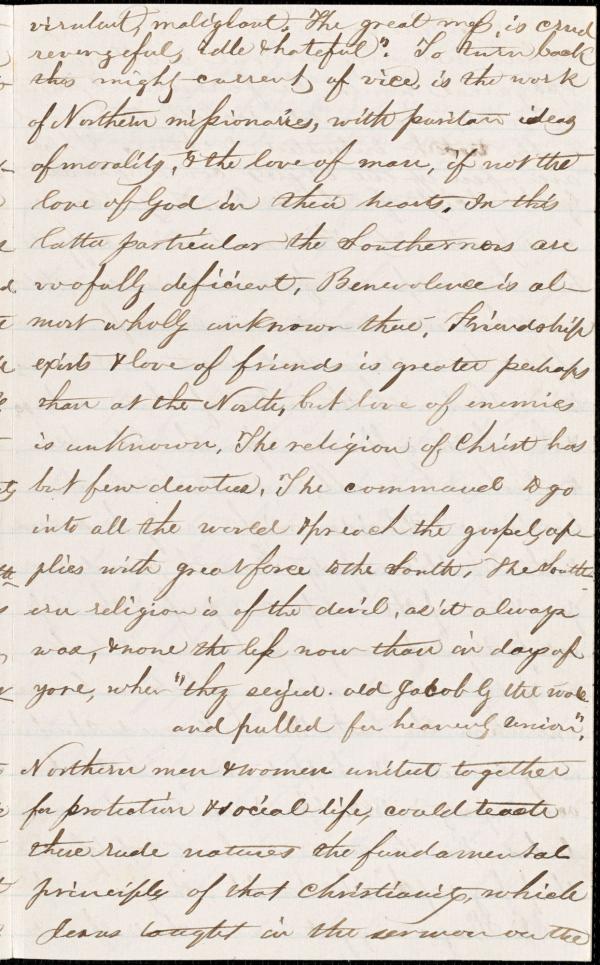 virulent, malignant. The great mass, is cruel
revengeful, idle & hateful". To turn back
this mighty current of vice, is the work
of Northern missionaries, with puritan ideas
of morality, & the love of man, if not the
love of God in their hearts. In this
latter particular the Southerners are
woofully deficient. Benevolence is al-
most wholly unknown there. Friendship
exists & love of friends is greater perhaps
than at the North, but love of enemies
is unknown. The religion of Christ has
but few devotees. The command to go
into all the world & preach the gospel, ap-
plies with great force to the South. The South-
ern religion is of the devil, as it always
was, & none the less now than in days of
yore, when "they seized old Jacob by the wool
and pulled for heavenly union".
Northern men & women united together
for protection & social life, could teach
these rude natures the fundamental
principles of that Christianity, which
Jesus taught in the sermon on the